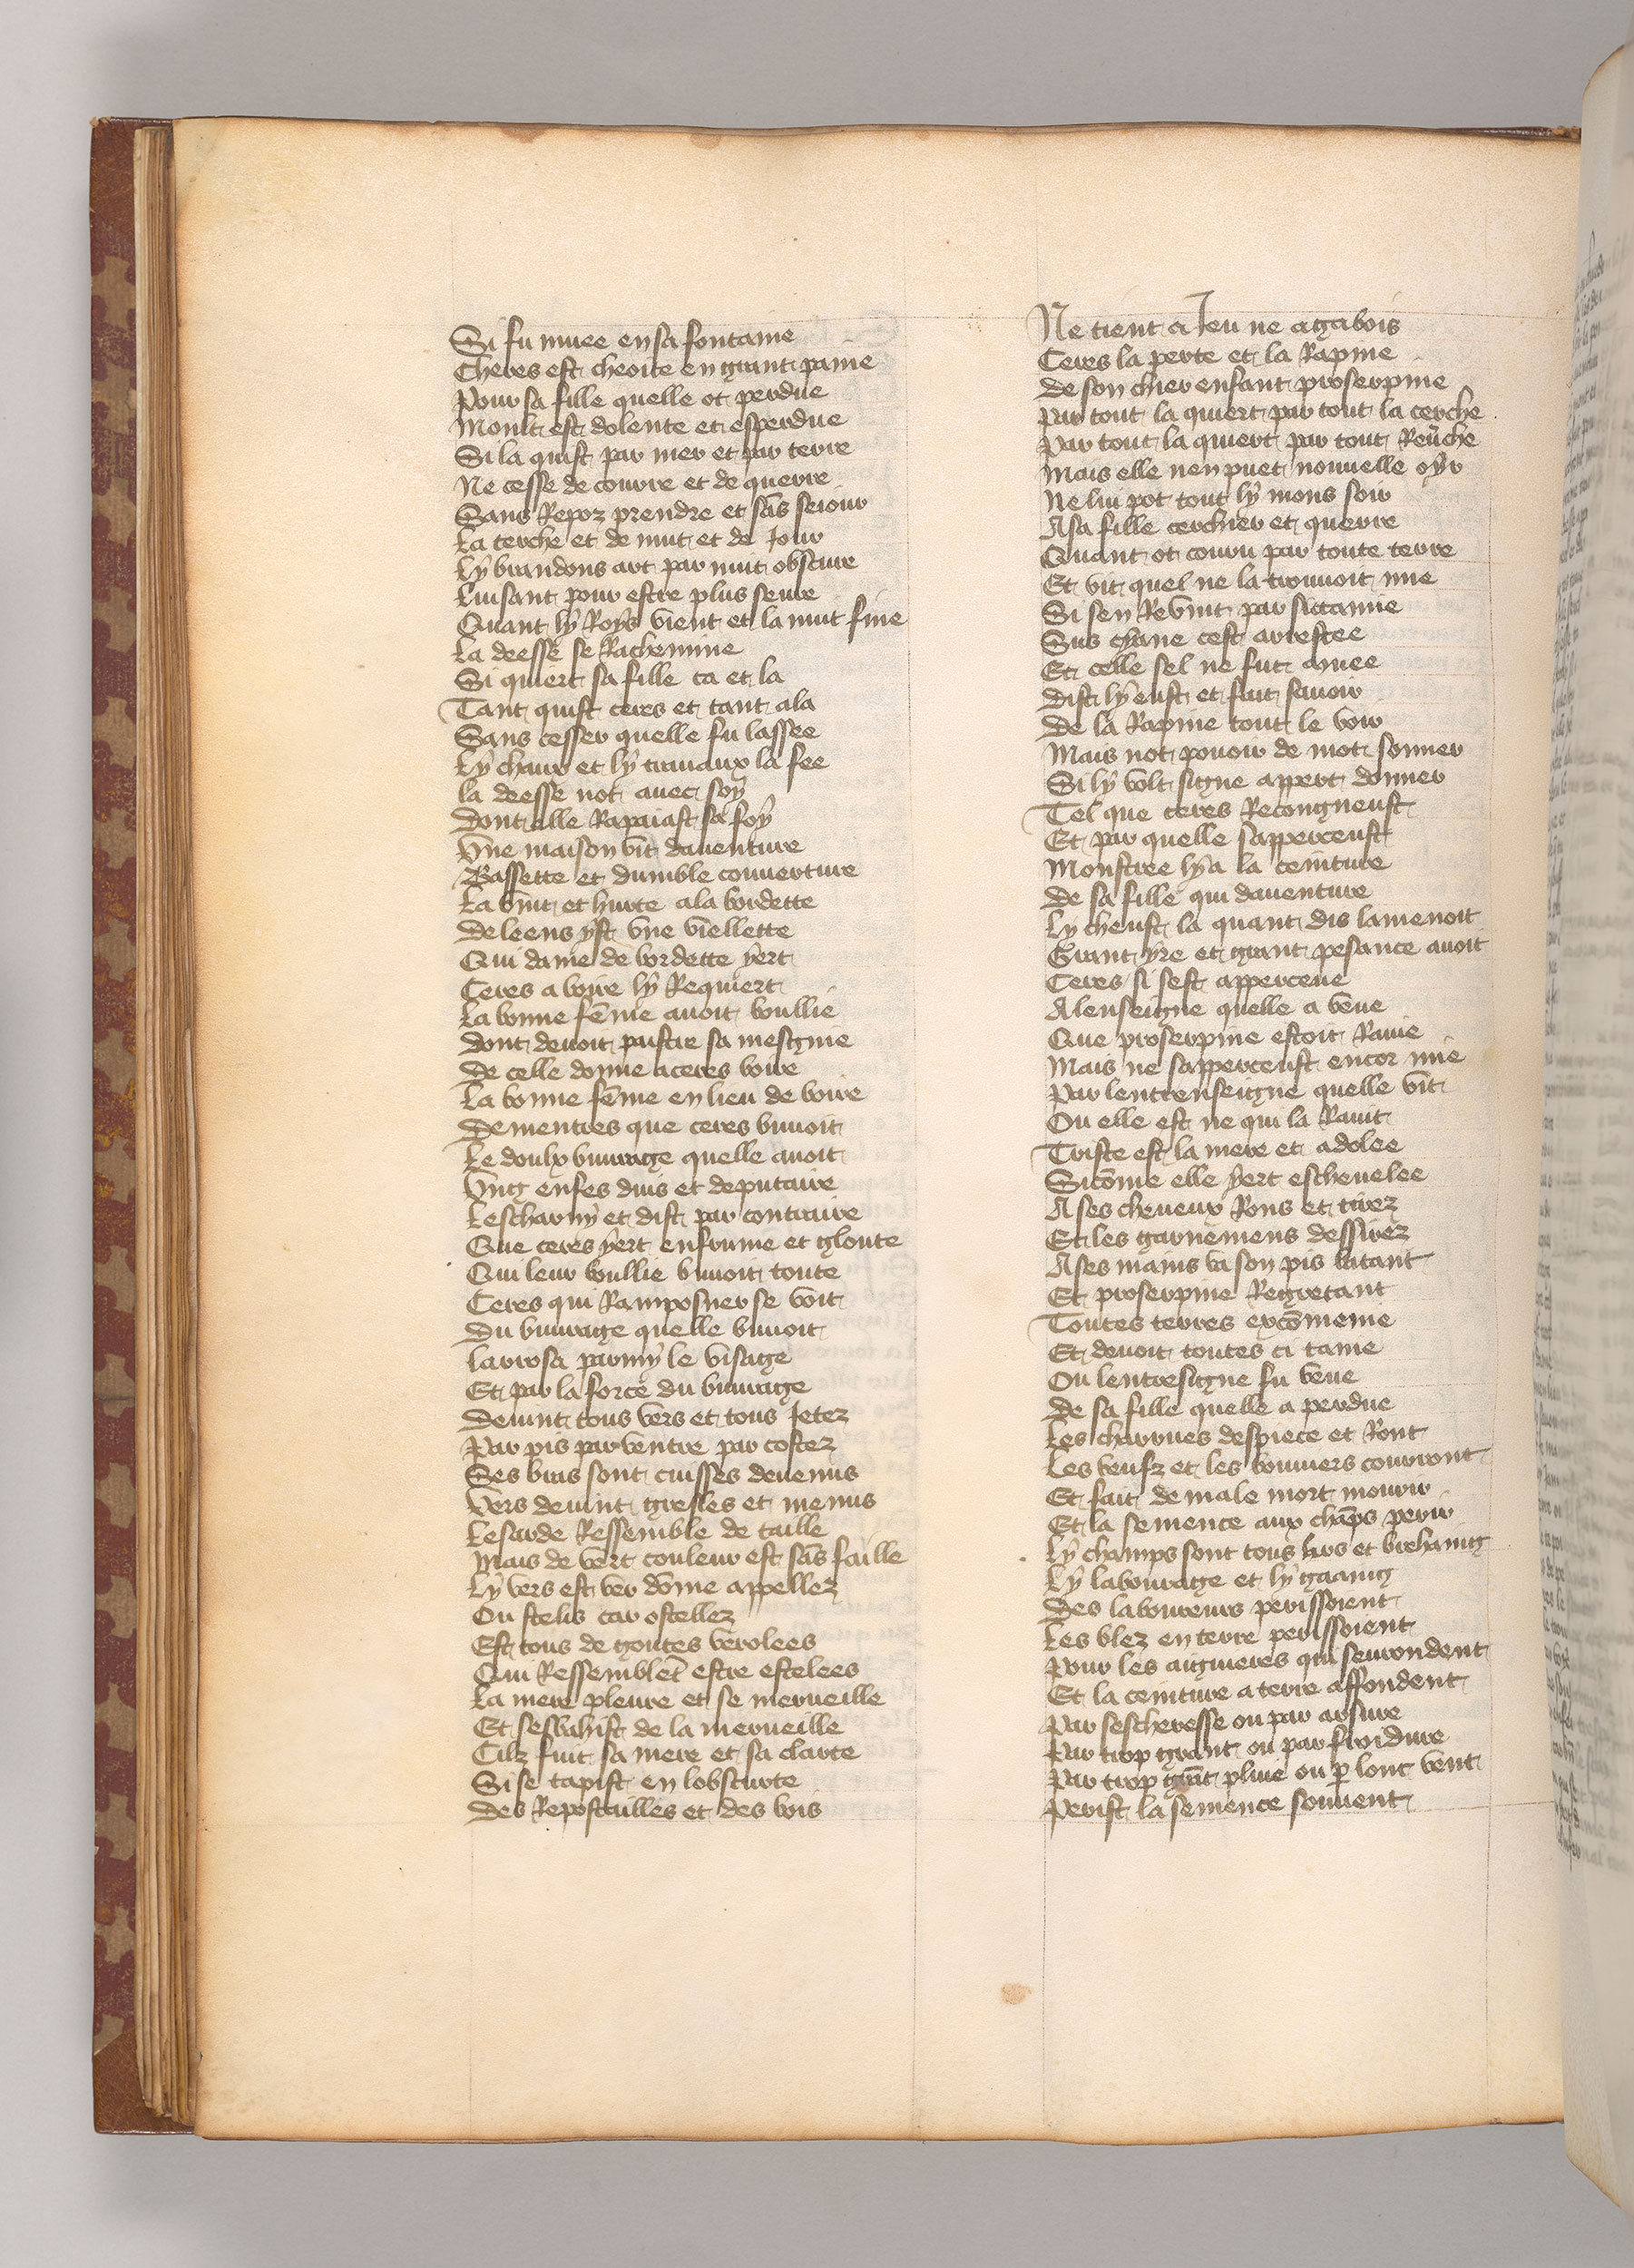 Si fu muee en sa fontaine
Cheres est cheoite en grant paine
Pour sa fille quelle ot perdue
Moult est dolente et esperdue
Si la quist par mer et par terre
Ne cesse de courre et de querre
Sans Repoz prendre et sãs seiour
La cerche et de nuit et de Jour
Lÿ brandons art par nuit obscure
Luisant pour estre plus seure
Quant lÿ Roys vient et la nuit fine
La deesse se Rachemine
Si quiert sa fille ca et la
Tant quist ceres et tant ala
Sans cesser quelle fu lassee
Lÿ chaux et lÿ travaux la fee
la deesse not avec soÿ
Dont elle Rapaiast sa soÿ
Vne maison vit daventure
Bassette et dumble couverture
La vint et hurte ala bordette
De leens yst vne viellette
Qui dame de bordette yert
Ceres a boire lÿ Requiert
La bonne fẽme avoit boullie
dont devoit paistre sa mesgnie
De celle donne a ceres boire
La bonne fẽme en lieu de boire
Dementres que ceres buvoit
Le doulx buvrage quelle avoit
Vng enfes duis et deputaire
Lescharnÿ et dist par contraire
Que ceres yert enfrume et gloute
Qui leur boullie buvoit toute
Ceres qui Ramposner se voit
Du buvrage quelle buvoit
larrosa parmÿ le visage
Et par la force du buvrage
Devint tous vers et tous Jetez
Par pis par ventre par costez
Ses bras sont cuisses devenus
Vers devint gresles et menus
Lesarde Ressemble de taille
Mais de vert couleur est sãs faille
Lÿ vers est ver dõme appellez
Ou stelis car ostellez
Est tous de goutes verolees
Qui Ressemblẽt estre estelees
La mere pleure et se merveille
Et sesbahist de la merveille
Cilz fuit sa mere et sa clarte
Si se tapist en lobscurte
Des Repostailles et des bois
Ne tient a Jeu ne a gabois
Ceres la perte et la Rapine
De son chier enfant proserpine
Par tout la quiert par tout la cerche
Par tout la quiert par tout Reũche
Mais elle nen puet nouvelle oÿr
Ne lui pot tout lÿ mons soir
A sa fille cerchier et querre
Quant ot couru par toute terre
Et vit quel ne la trouvoit mie
Si sen Revint par siccanie
Sus chane cest arrestee
Et celle sel ne fut muee
Dist lÿ eust et fait savoir
De la Rapine tout le voir
Mais not povoir de mot sonner
Si lÿ volt signe appert donner
Tel que ceres Recongneust
Et par quelle sapperceust
Monstree lÿ a la ceinture
De sa fille qui daventure
Ly cheust la quant dis lamenoit
Grant yre et grant pesance avoit
Ceres si sest apperceue
A lenseigne quelle a veue
Que proserpine estoit Ravie
Mais ne sapperceust encor mie
Par lentrenseigne quelle vit
Ou elle est ne qui la Ravit
Triste est la mere et adolee
Sicõme elle yert eschevelee
A ses cheveux Rons et tirez
Et les garnemens dessirez
A ses mains va son pis batant
Et proserpine Regretant
Toutes terres excõmenie
Et devoit toutes ci tanie
Ou lentresigne fu veue
De sa fille quelle a perdue
Les charrues despiece et Ront
Les beufz et les bouviers courront
Et fait de male mort mourir
Et la semence aux chãps perir
Lÿ champs sont tous bris et brehaing
Lÿ labourage et lÿ gaaing
Des laboureurs perissoient
Les blez en terre perissoient
Pour les aigueres qui seurondent
Et la ceinture a terre affondent
Par sescheresse ou par arsure
Par trop grant ou par froidure
Par trop grãt pluie ou p̱ lont vent
Perist la semence souvent